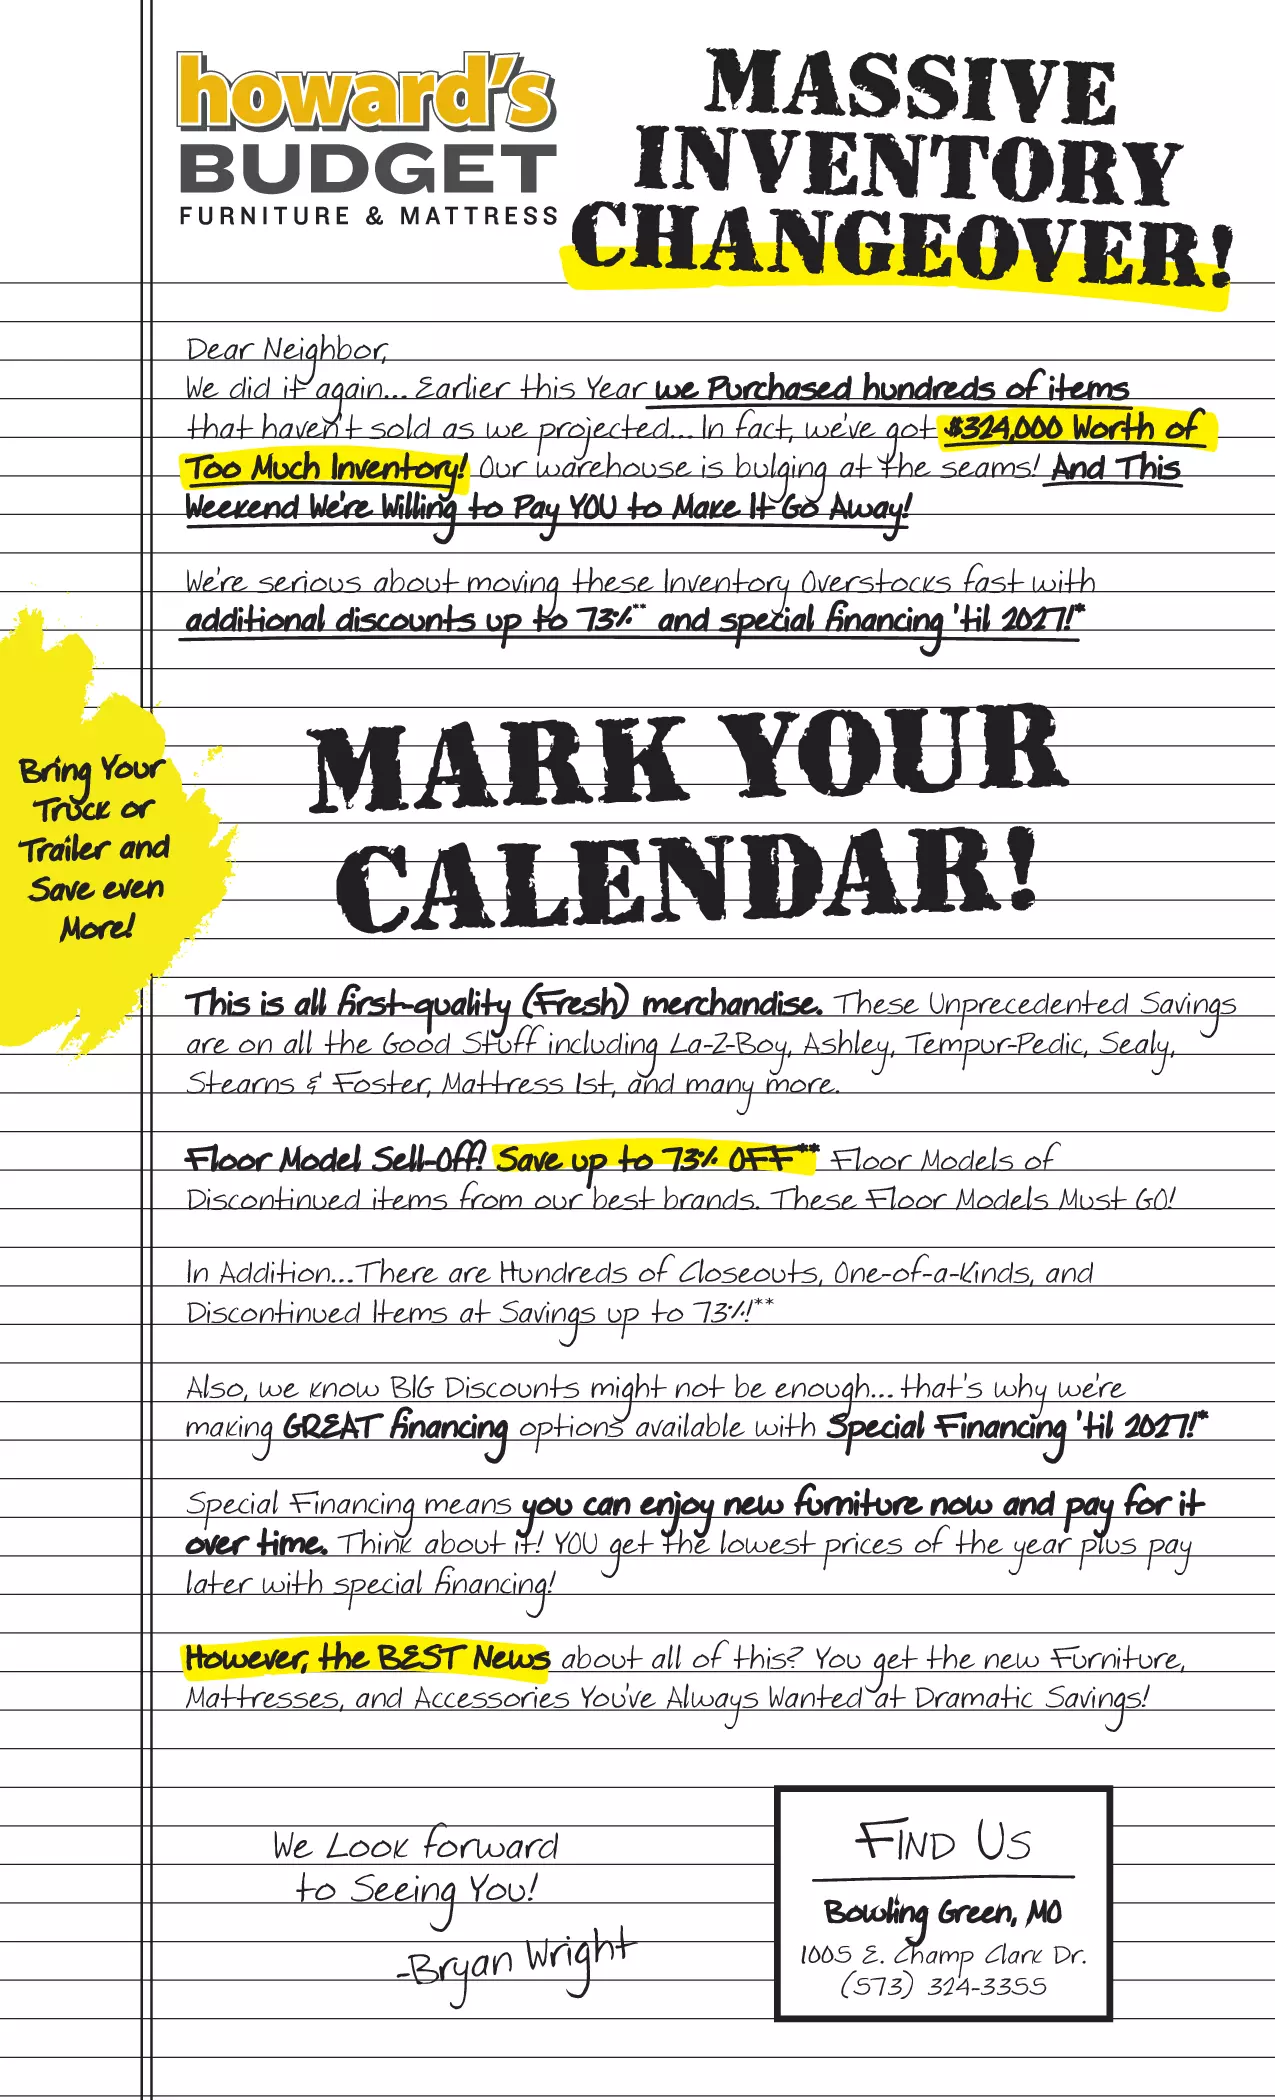 howard's
BUDGET
FURNITURE & MATTRESS
MASSIVE
INVENTORY
CHANGEOVER!
Dear Neighbor,
We did it again... Earlier this Year we Purchased hundreds of items
that haven't sold as we projected... In fact, we've got $324,000 Worth of
Too Much Inventory! Our warehouse is bulging at the seams! And This
Weekend We're Willing to Pay YOU to Make It Go Away!
We're serious about moving these Inventory Overstocks fast with
additional discounts up to 73%** and special financing 'til 2027!*
Bring Your
Truck or
Trailer and
Save even
More!
MARK YOUR
CALENDAR!
This is all first-quality (Fresh) merchandise. These Unprecedented Savings
are on all the Good Stuff including La-Z-Boy, Ashley, Tempur-Pedic, Sealy,
Stearns & Foster, Mattress 1st, and many more.
Floor Model Sell-Off! Save up to 73% OFF** Floor Models of
Discontinued items from our best brands. These Floor Models Must GO!
In Addition...There are Hundreds of Closeouts, One-of-a-Kinds, and
Discontinued Items at Savings up to 73%!**
Also, we know BIG Discounts might not be enough... that's why we're
making GREAT financing options available with Special Financing 'til 2027!*
Special Financing means you can enjoy new furniture now and pay for it
over time. Think about it! YOU get the lowest prices of the year plus pay
later with special financing!
However, the BEST News about all of this? You get the new Furniture,
Mattresses, and Accessories You've Always Wanted at Dramatic Savings!
We Look forward
to Seeing You!
-Bryan Wright
FIND US
Bowling Green, MO
1005 E. Champ Clark Dr.
(573) 324-3355